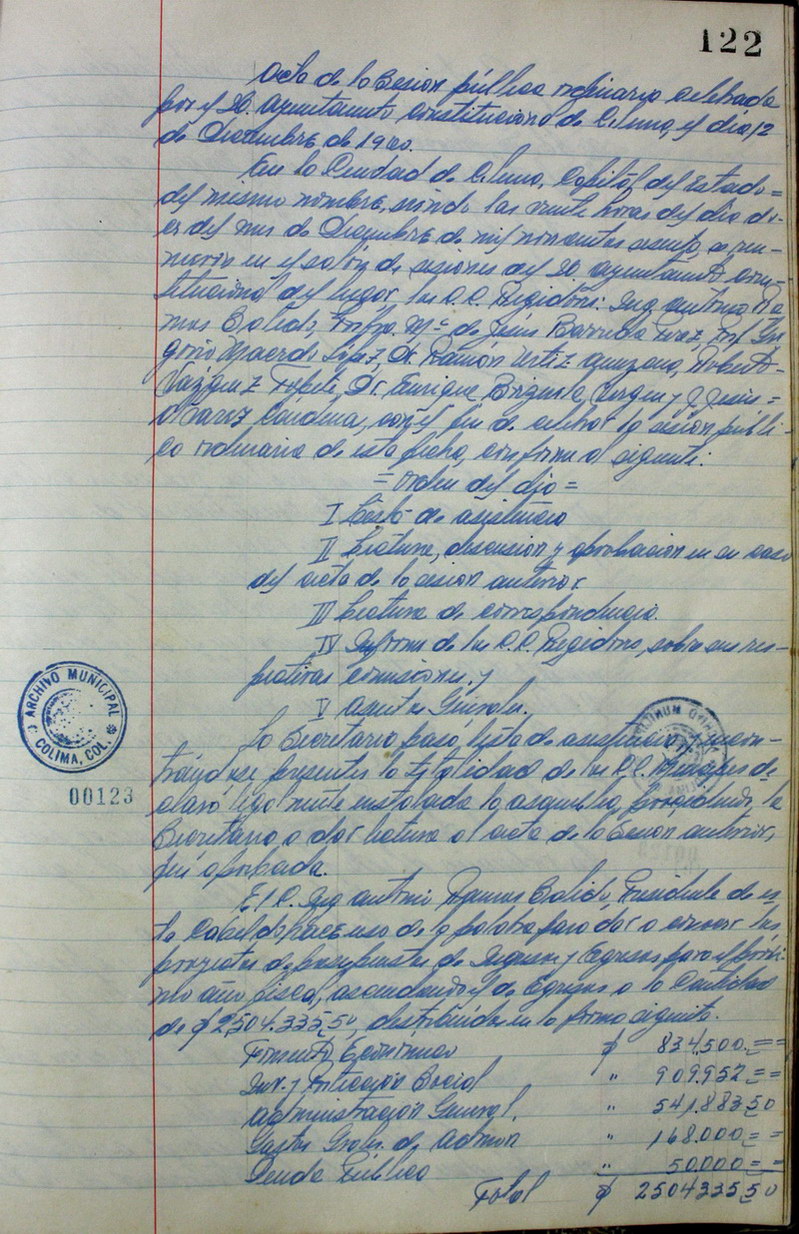 122
Acta de la Sesion pública ordinaria celebrada
por el H. Ayuntamiento Constitucional de Colima, el día 12
de Diciembre de 1960.
En la Ciudad de Colima, Capital del Estado=
del mismo nombre, siendo las veinte horas del día do-
ce del mes de Diciembre de mil novecientos sesenta, se reu-
nieron en el salón de sesiones del H. Ayuntamiento Cons-
titucional del lugar, los C.C. Regidores: Ing Antonio Ra
mos Salido, Profra. Ma. de Jesús Barreda Perez, Prof. Gre
gorio Macedo López, Dr. Ramón Ortiz, Roberto-
Vázquez Topete, Dr. Enrique Brizuela Virgen y J. Jesús=
Alvarez Cardena, con el fin de celebrar la sesión públi-
ca ordinaria de esta fecha, conforme al siguiente:
= orden del día =
I Lista de asistencia
II Lectura, discusion y aprobacion en su caso
del acta de la sesion anterior
III Lectura de correspondencia.
IV Informe de los C.C. Regidores, sobre sus res-
pectivas comisiones. y
V Asuntos Generales.
La Secretario pasó lista de asistencia, y encon-
trándose presentes la totalidad de los C.C. Municipes de-
claró legalmente instalada la asamblea, procediendo, la
Secretario, a dar lectura al acta de la Sesion anterior,
fué aprobada.
El C. Ing Antonio Ramos Salido, Presidente de es
te Cabildo hace uso de la palabra para dar a conocer los
proyectos de presupuestos de Ingresos y Egresos para el próxi-
mo año fiscal, ascendiendo el de Egresos a la Cantidad
de $ 2,504.335.50, distribuidos en la forma siguiente.
Fomento Económico $ 834,500.==
Inv. y Proteccion Social " 909.952==
Administración General, " 541.883.50
Gastos Grales. de Admon " 168.000==
Deuda Pública " 50.000==
Total $ 2504335.50
ARCHIVO MUNICIPAL
COLIMA, COL.
00123